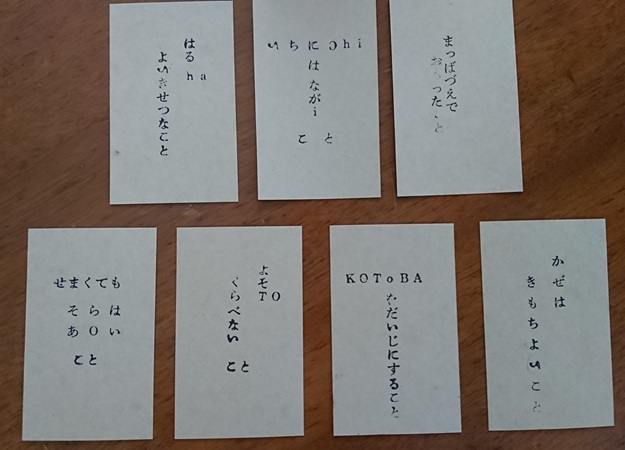 はる
ha
よいきせつなこと
いちにchi
はながi
こと
まっばづえで
おもったこと
せまくても
そらは
あOい
こと
よそ
TO
くらべない
こと
KOToBA
をだいじにすること
かぜは
きもちよいこと